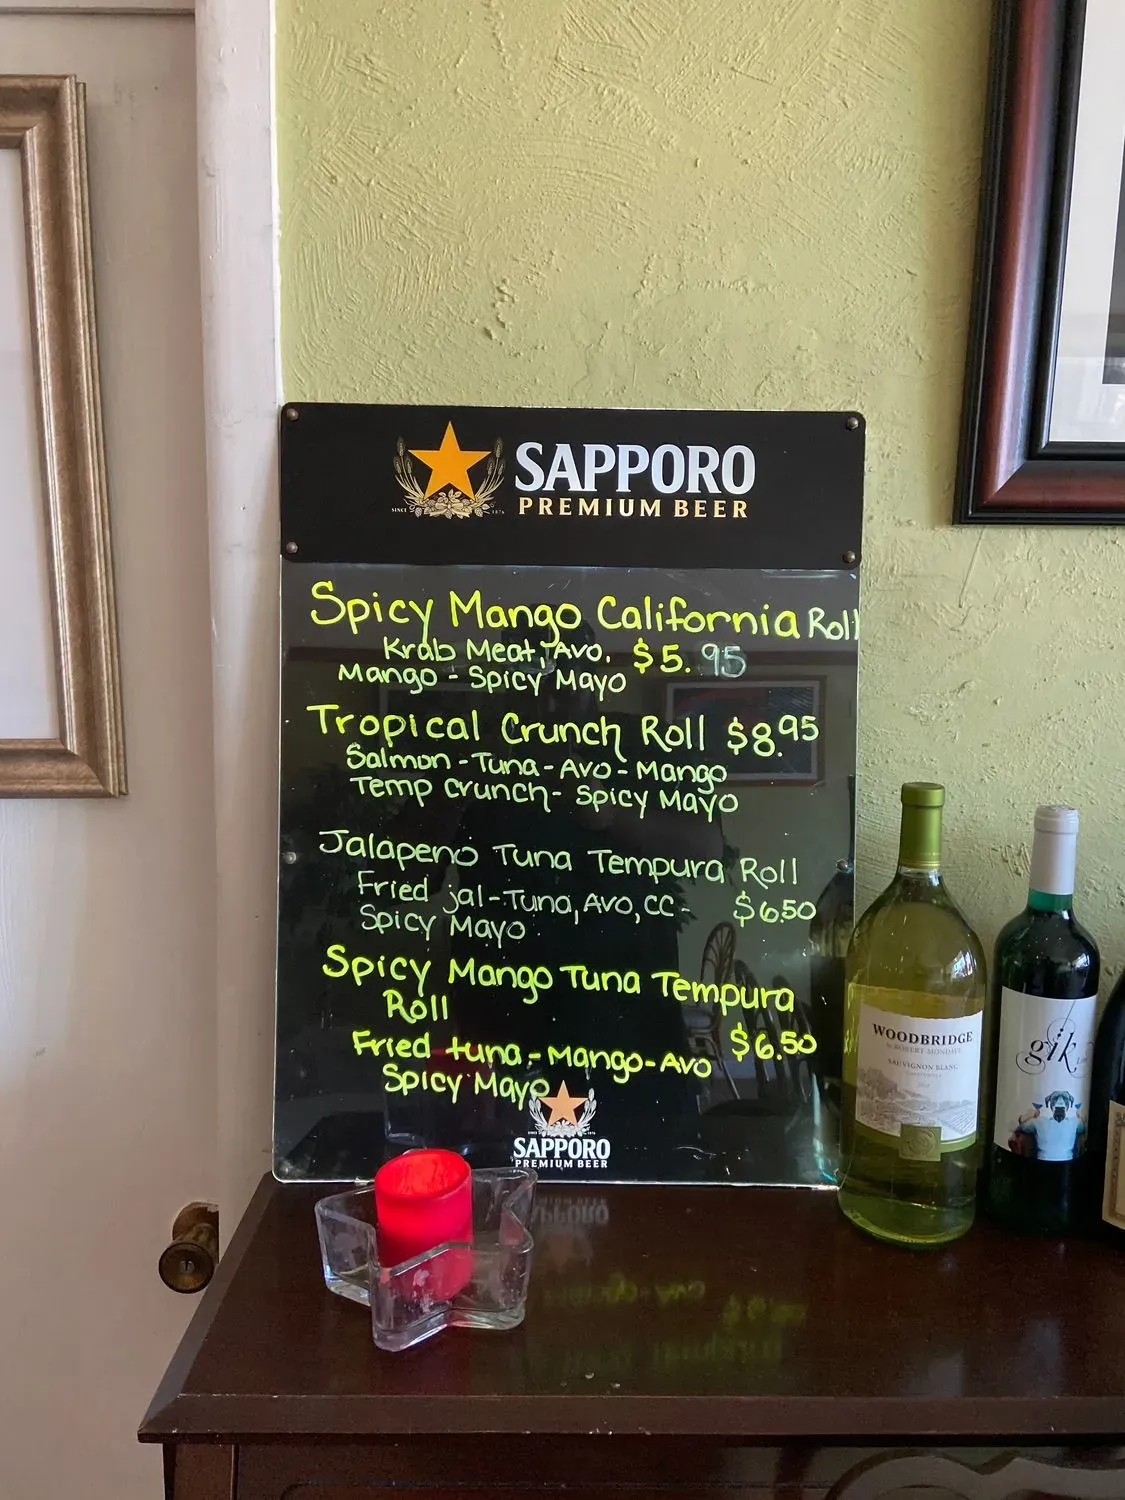 SAPPORO
PREMIUM BEER
SINCE 1876
Spicy Mango California Roll
Krab Meat, Avo. $5.95
Mango - Spicy Mayo
Tropical Crunch Roll $8.95
Salmon - Tuna - Avo - Mango
Temp crunch - Spicy Mayo
Jalapeno Tuna Tempura Roll
Fried jal - Tuna, Avo, cc - $6.50
Spicy Mayo
Spicy Mango Tuna Tempura
Roll
$6.50
Fried tuna - Mango - Avo
Spicy Mayo
SAPPORO
PREMIUM BEER
WOODBRIDGE
BY ROBERT MONDAVI
SAUVIGNON BLANC
CALIFORNIA
gik